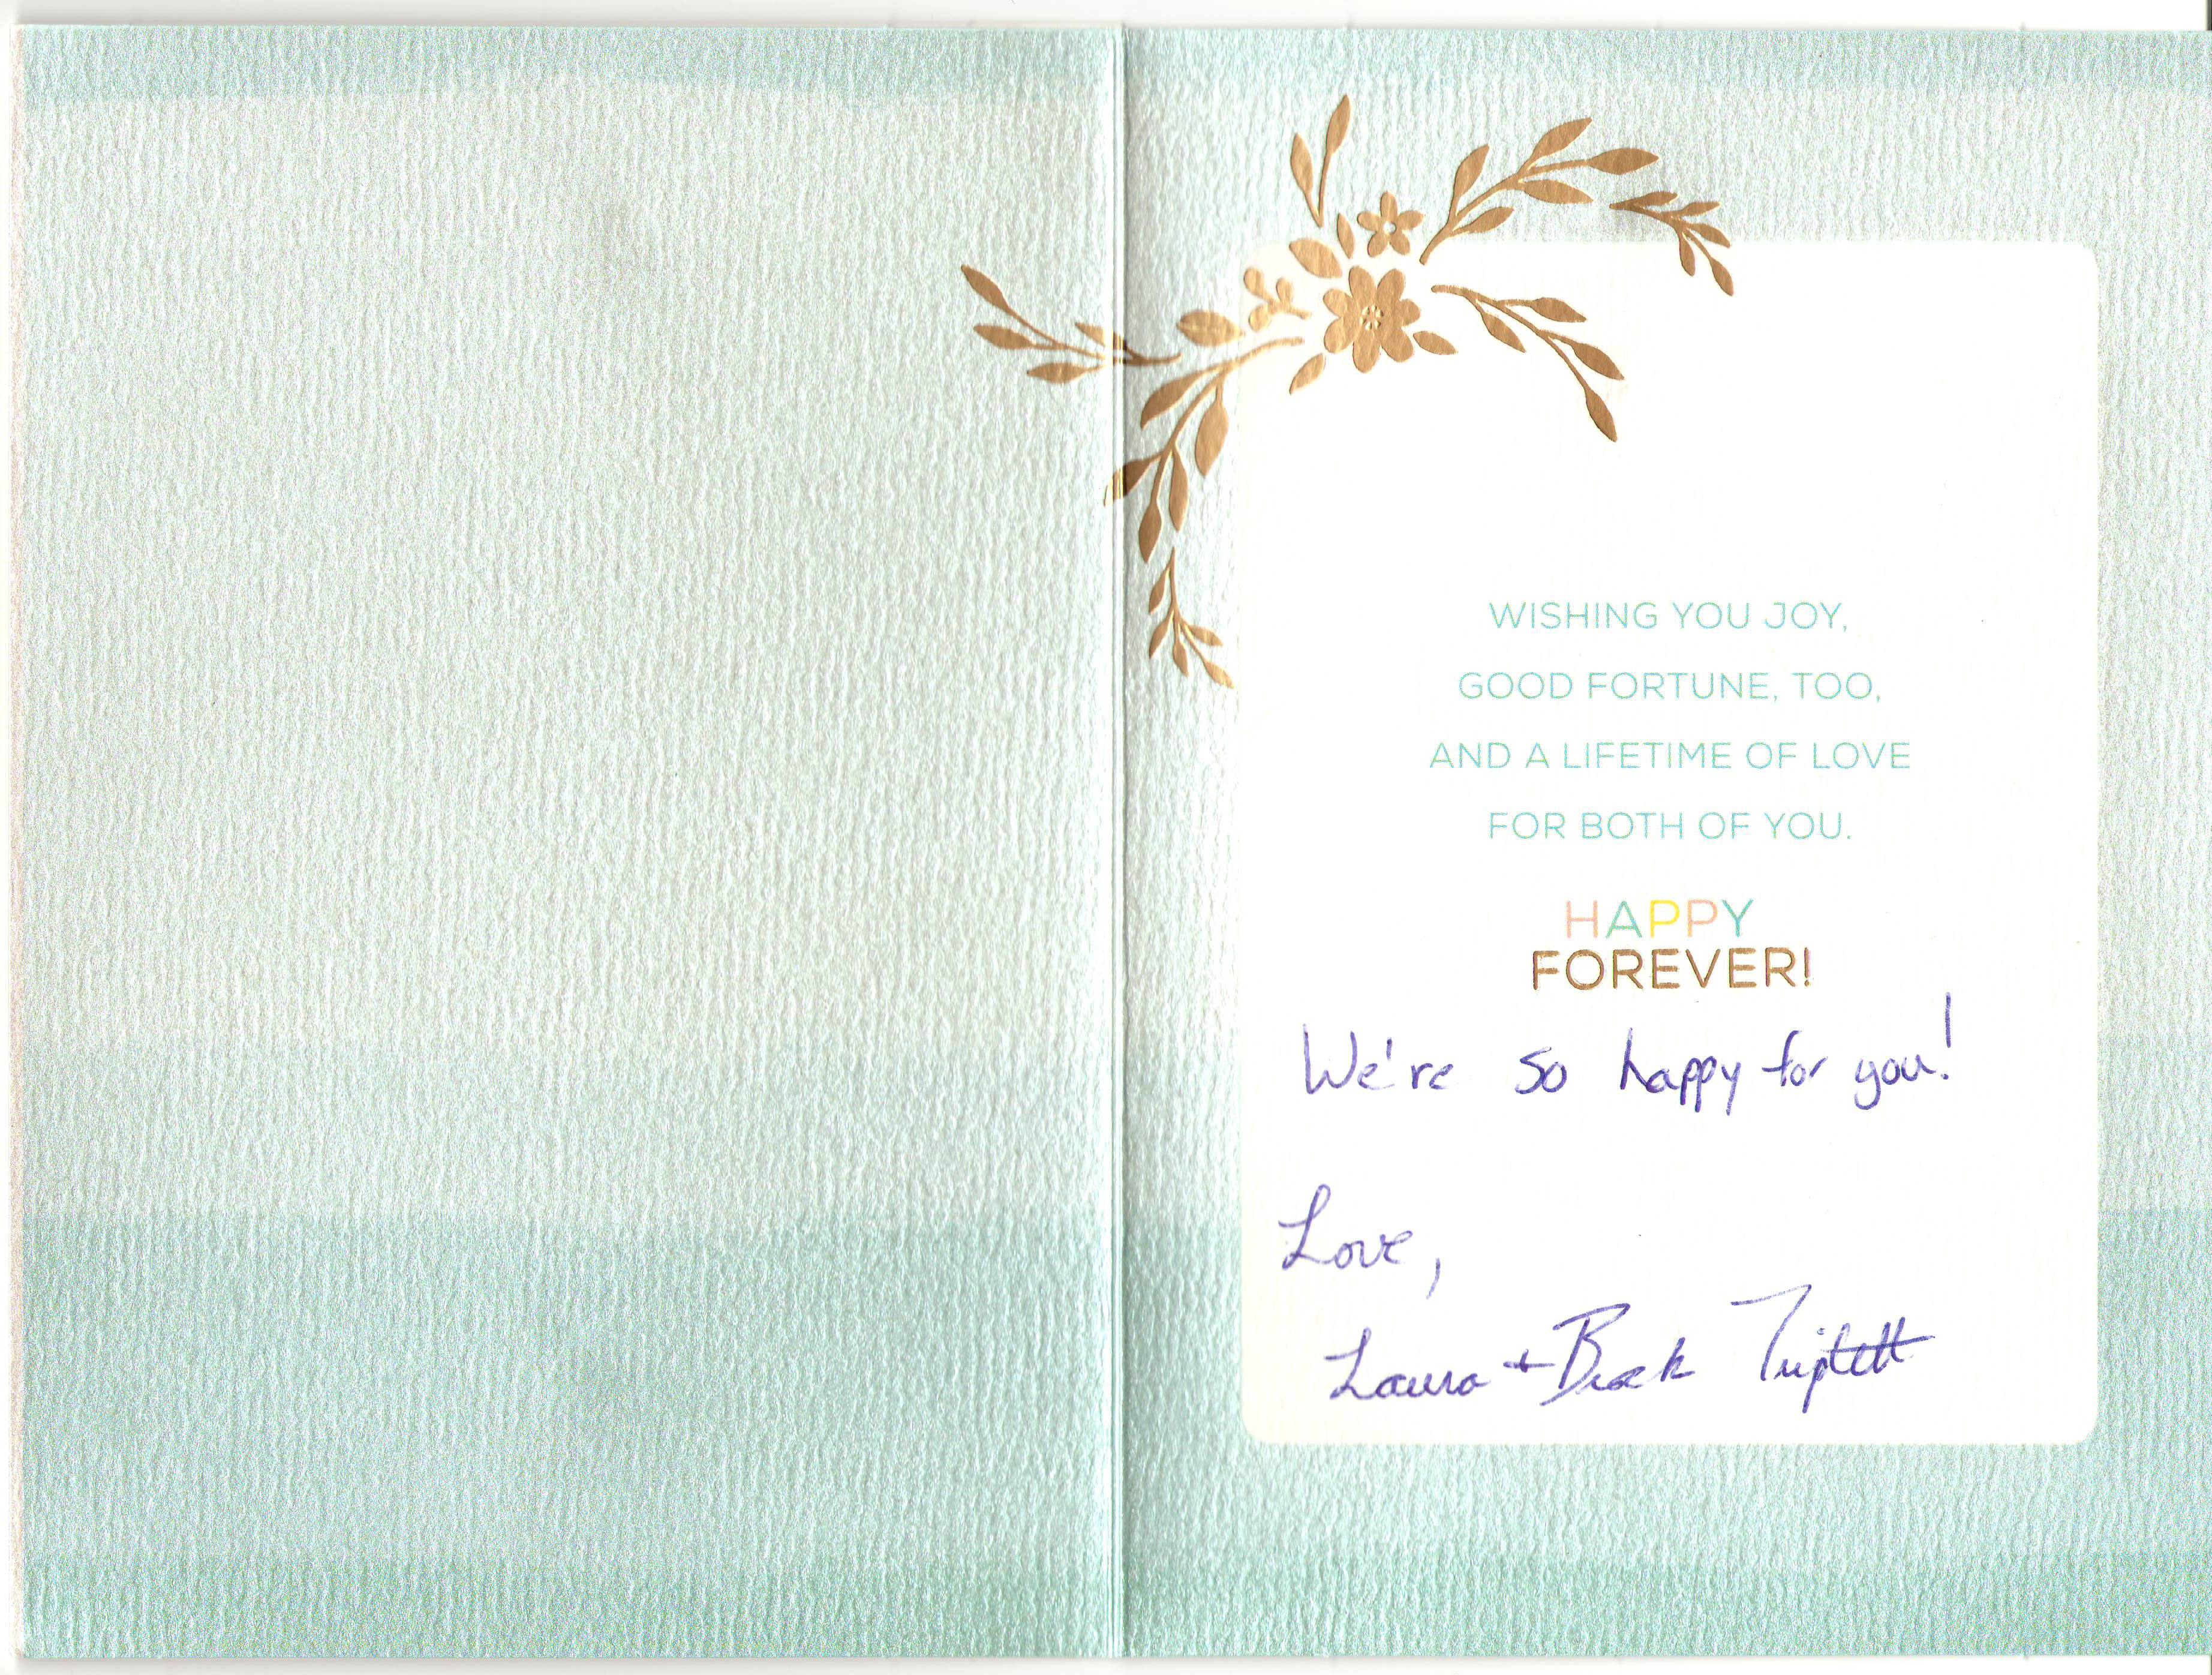 WISHING YOU JOY,
GOOD FORTUNE, TOO,
AND A LIFETIME OF LOVE
FOR BOTH OF YOU.
HAPPY
FOREVER!
We're so happy for you!
Love,
Laura + Triplett